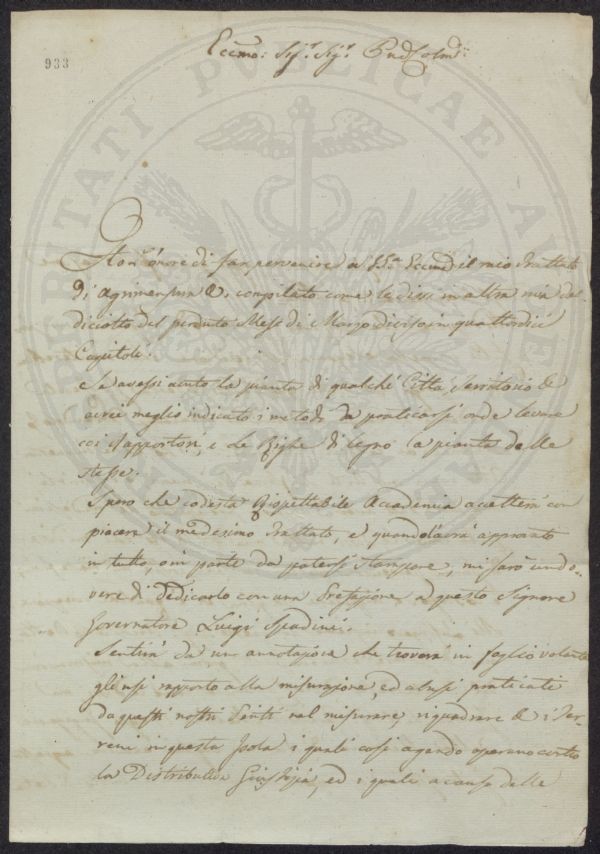 933
Eccmo: Sigr. Sigr. Pne Colmo:
Ho l'onore di far pervenire a V.Sa. Eccma il mio trattato
di Agrimensura &, compilato come le dissi in altra mia de'
diciotto del perduto Mese di Marzo diviso in quattordici
Capitoli.
Se avessi avuto la pianta di qualche Città Territorio &
avrei meglio indicato i metodi da praticarsi onde levare
coi Rapportori, e le Righe di legno la pianta delle
stesse.
Spero che codesta Rispettabile Accademia accetterà con
piacere il medesimo trattato, e quando l'avrà approvato
in tutto, o in parte da potersi stampare, mi farò un do-
vere di Dedicarlo con una Prefazione a questo Signore
Governatore Luigi Spadini.
Sentirà da un annotazione che troverà in foglio volante
gli usi rapporto alla misurazione, ed abusi praticati
da questi nostri Periti nel misurare riquadrare & i Ter-
reni in questa Isola i quali così agendo operano contro
la Distributiva Giustizia, ed i quali a causa delle
RITATI PUBLICAE AU